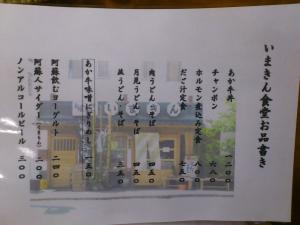 いまきん食堂お品書き
あか牛丼 一二〇〇
チャンポン 六八〇
ホルモン煮込み定食 八〇〇
だご汁定食 七五〇
肉うどん・そば 四五〇
月見うどん・そば 四五〇
並うどん・そば 三五〇
あか牛味噌にぎりめし 一五〇
阿蘇飲むヨーグルト 二四〇
阿蘇人サイダー 二〇〇
ノンアルコールビール 三〇〇